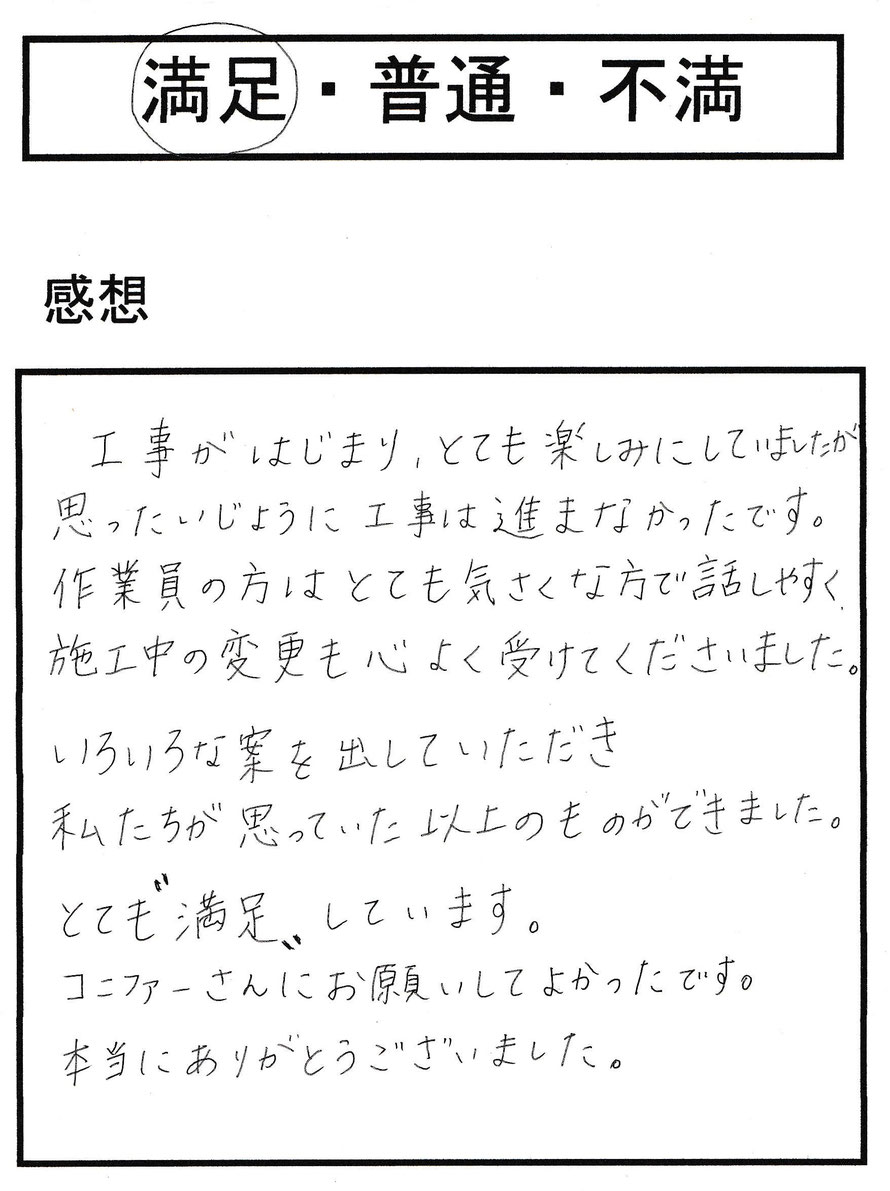 満足・普通・不満
感想
工事がはじまり、とても楽しみにしていましたが
思ったいじょうに工事は進まなかったです。
作業員の方はとても気さくな方で話しやすく、
施工中の変更も心よく受けてくださいました。
いろいろな案を出していただき
私たちが思っていた以上のものができました。
とても〝満足〟しています。
コニファーさんにお願いしてよかったです。
本当にありがとうございました。